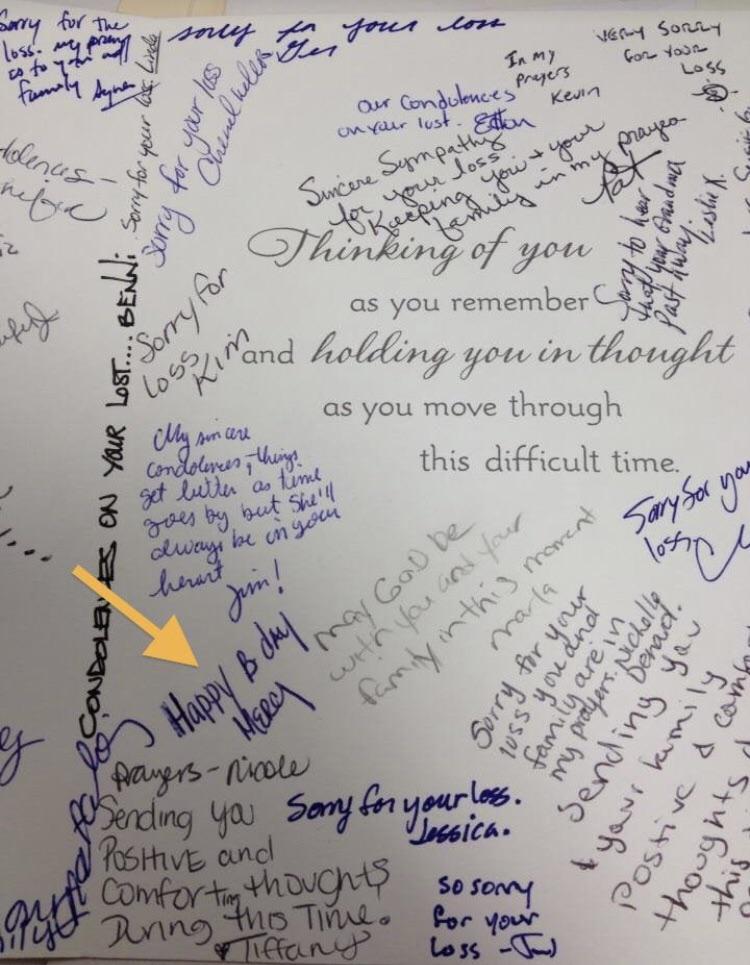 Sorry for the
loss. my prays
go to you and
family
sorry for your loss
Sorry for your loss. Linda
Sorry for your loss
In my
prayers
Kevin
VERY SORRY
FOR YOUR
LOSS
our Condolences
on your lost.
Sincere Sympathy
for your loss
Keeping you + your
family in my prayers
Pat
Sorry to hear
that your Grandma
Past away.
Leslie K.
Thinking of you
as you remember
and holding you in thought
as you move through
this difficult time.
CONDOLENCES ON YOUR LOST.... BENNI
Sorry for
loss
Kim
My sincere
condolences, things
get better as time
goes by but she'll
always be in your
heart
Jim!
Happy B day
Mercy
may GOD be
with you and your
family in this moment
Marla
Sorry for your
loss
Sorry for your
loss you and
family are in
my prayers. Nichelle
Sending you
& your family
Positive &
thoughts
this
Prayers - Nicole
Sending you
POSITIVE and
Comforting thoughts
During this Time.
♥ Tiffany
Sorry for your loss.
Jessica.
so sorry
for your
loss